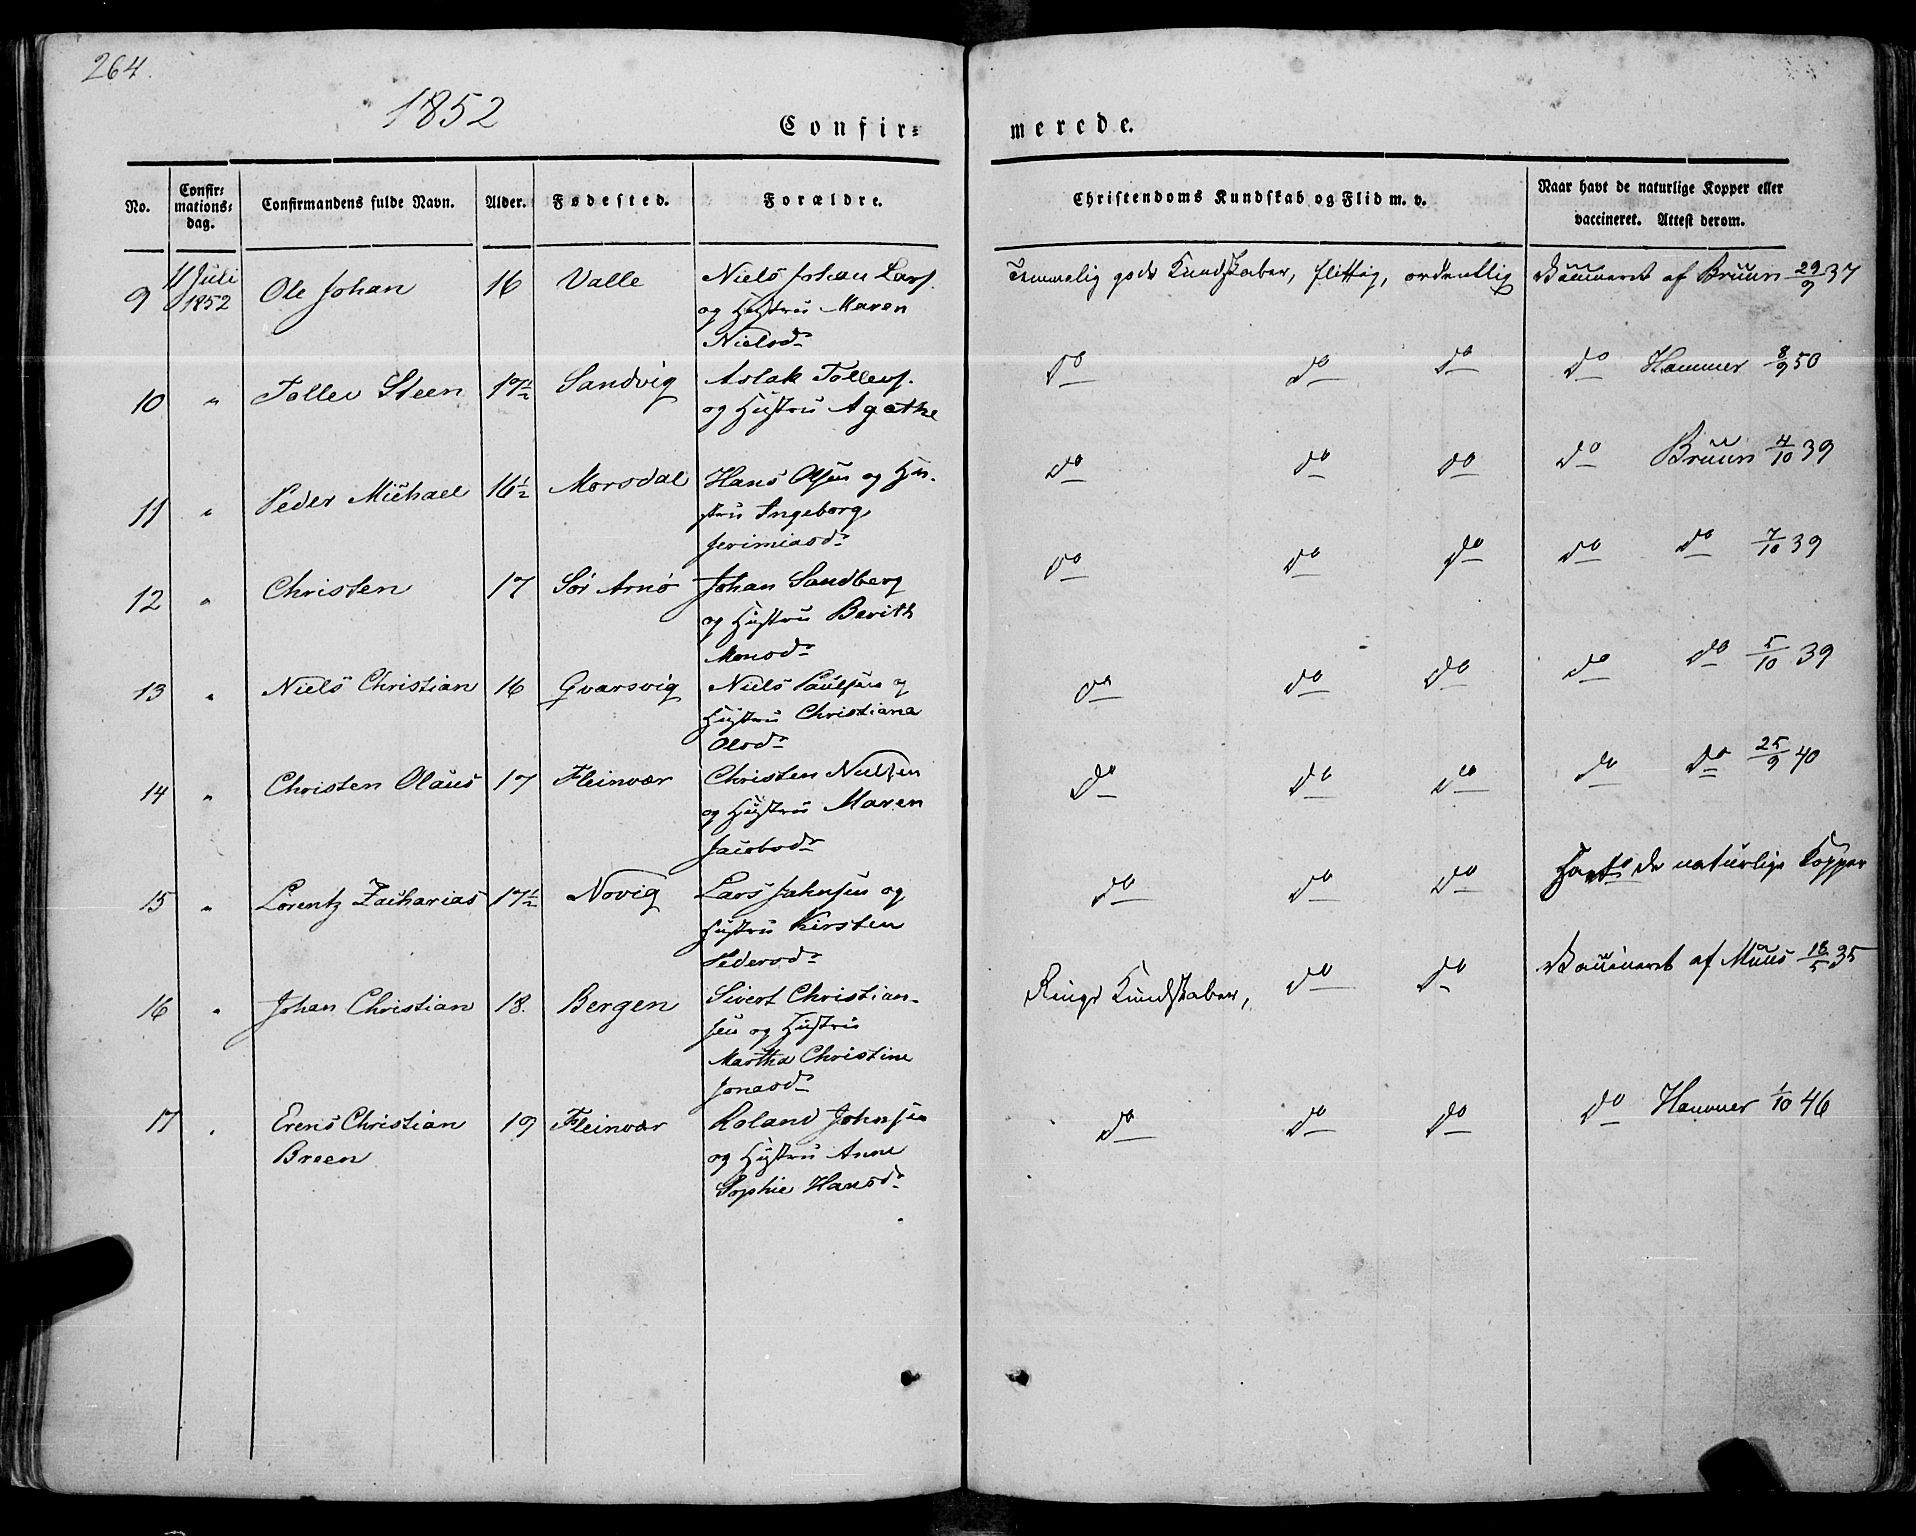 264.
1852
Confir=
merede.
No.
Confir=
mations=
dag.
Confirmandens fulde Navn.
Alder.
Fødested.
Forældre.
Christendoms Kundskab og Flid m. v.
Naar havt de naturlige Kopper eller
vaccineret. Attest derom.
9 11 Juli 1852 Ole Johan 16 Valle Niels Johan Lars.
og Hustru Maren
Nielsd.
Temmelig gode Kundskaber, flittig, ordentlig Vaccineret af Bruun 29/9 37
10 " Tollev Steen 17 1/2 Sandvig Aslak Tollevs.
og Hustru Agathe
do do do do Hammer 8/9 50
11 " Peder Michael 16 1/2 Morsdal Hans Olsen og Hu-
stru Ingeborg
Jerimiasd.
do do do do Bruun 4/10 39
12 " Christen 17 Sør Arnø Johan Sandberg
og Hustru Berith
Monsd.
do do do do do 7/10 39
13 " Niels Christian 16 Gvarsvig Niels Paulsen og
Hustru Christiana
Olsd.
do do do do do 5/10 39
14 " Christen Olaus 17 Fleinvær Christen Nielsen
og Hustru Maren
Jacobsd.
do do do do do 25/9 40
15 " Lorentz Zacharias 17 1/2 Novig Lars Jahnsen og
Hustru Kirsten
Pedersd.
do do do Havt de naturlige Kopper
16 " Johan Christian 18. Bergen Sivert Christian-
sen og Hustru
Martha Christine
Jonasd.
Ringe Kundskaber, do do Vaccineret af Muus 18/5 35
17 " Erens Christian
Breen
19 Fleinvær Roland Johnsen
og Hustru Anne
Sophie Hansd.
do do do do Hammer 1/10 46